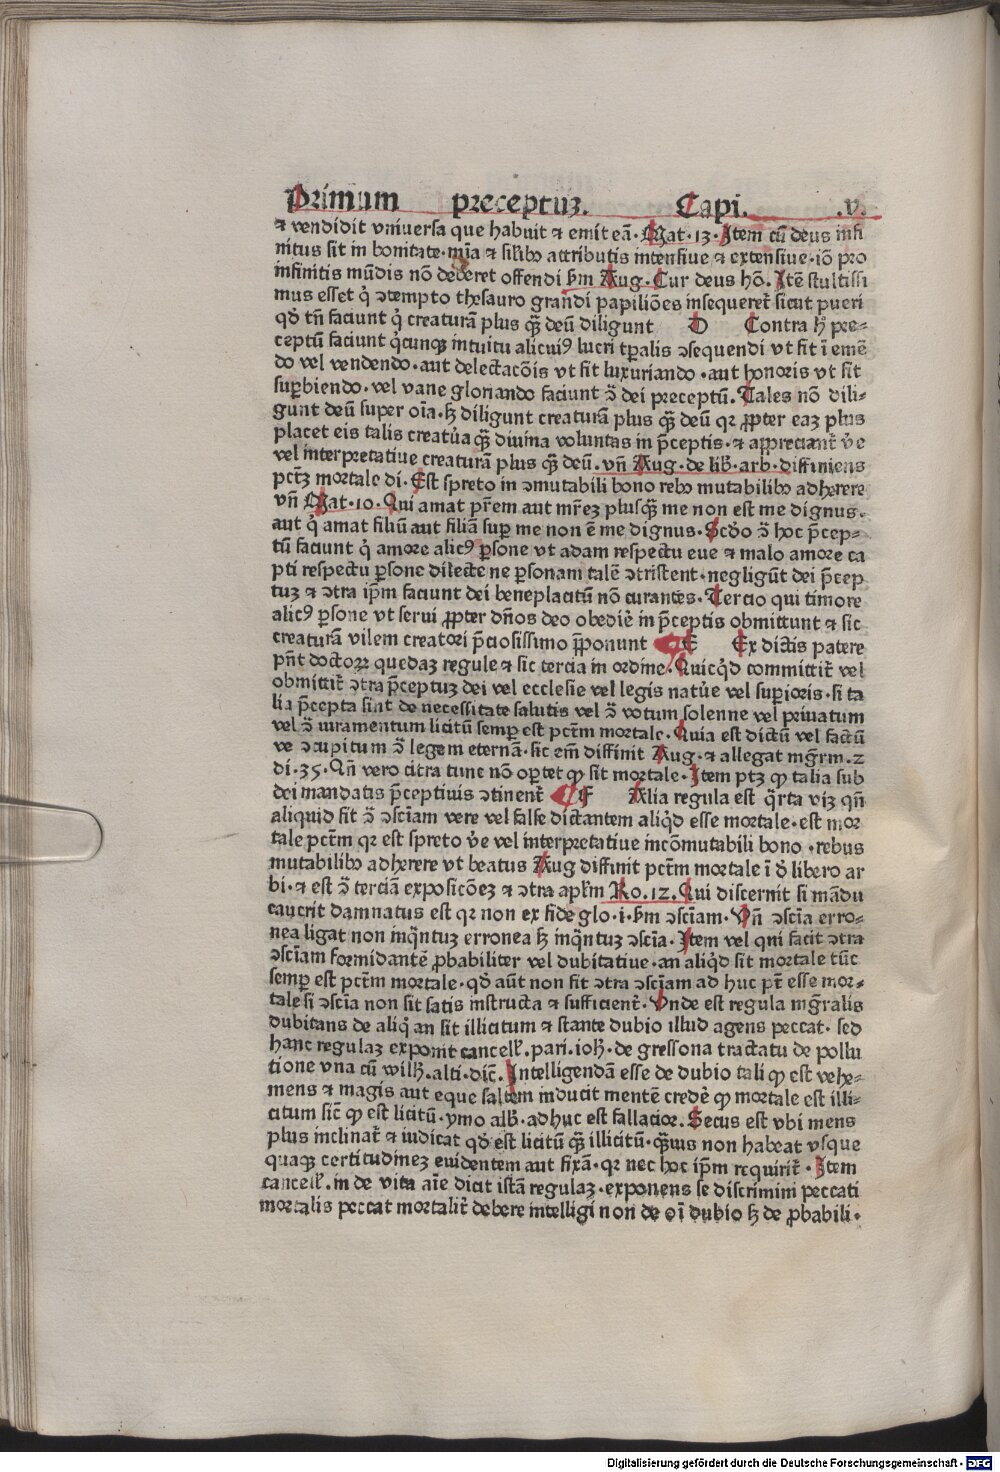 Primum preceptuꝫ. Capi. .v.
⁊ vendidit vniuersa que habuit ⁊ emit eā· Mat·13·Item cū deus infi
nitus sit in bonitate·mīa ⁊ silibꝰ attributis intensiue ⁊ extensiue·iō pro
infinitis mūdis nō deberet offendi ẜm Aug·Cur deus hō.Itē stultissi
mus esset q̇ ꝯtempto thesauro grandi papiliōes insequeret᷑ sicut pueri
qđ tn̄ faciunt q̇ creaturā plus qͣ̄ deū diligunt D Contra hͦ pre⸗
ceptū faciunt q̇cunqꝫ intuitu alicuiꝰ lucri tꝑalis ꝯsequendi vt fit ī emē
do vel vendendo·aut delectacōis vt fit luxuriando·aut honoris vt fit
suꝑbiendo·vel vane gloriando faciunt ꝯ̄ dei preceptū.Tales nō dili⸗
gunt deū super oīa·sꝫ diligunt creaturā plus qͣ̄ deū qꝛ ꝓpter eaꝫ plus
placet eis talis creatu̾a qͣ̄ diuina voluntas in p̄ceptis·⁊ appreciant᷑ ve̾
vel interpretatiue creaturā plus qͣ̄ deū.vn̄ Aug·de lib̾·arb·diffiniens
pctꝫ mortale di·Est spreto in ꝯmutabili bono rebꝰ mutabilibꝰ adherere
vn̄ Mat·10·Qui amat pr̄em aut mr̄eꝫ plusqͣ̄ me non est me dignus.
aut q̇ amat filiū aut filiā suꝑ me non ē me dignus·Scd̾o ꝯ̄ hoc p̄cep⸗
tū faciunt q̇ amore alicꝰ ꝑsone vt adam respectu eue ⁊ malo amore ca
pti respectu ꝑsone dilecte ne ꝑsonam talē ꝯtristent·negligūt dei p̄cep
tuꝫ ⁊ ꝯtra ip̄m faciunt dei beneplacitū nō curantes·Tercio qui timore
alicꝰ ꝑsone vt serui ꝓpter dn̄os deo obedie̾ in p̄ceptis obmittunt ⁊ sic
creaturā vilem creatori p̄ciosissimo p̄ponunt E Ex dictis patere
pn̄t doctoꝝ quedaꝫ regule ⁊ sic tercia in ordine.Quicq̇d committit᷑ vel
obmittit᷑ ꝯtra p̄ceptuꝫ dei vel ecclesie vel legis natu̾e vel suꝑioris·si ta
lia p̄cepta sint de necessitate salutis vel ꝯ̄ votum solenne vel priuatum
vel ꝯ̄ iuramentum licitū semꝑ est pctm̄ mortale·Quia est dictū vel factū
ve ꝯcupitum ꝯ̄ legem eternā·sic em̄ diffinit Aug·⁊ allegat mgr̄m.2
di·35·Qn̄ vero citra tunc nō oꝑtet ꝙ sit mortale·Item ptꝫ ꝙ talia sub
dei mandatis p̄ceptiuis ꝯtinent᷑ F Alia regula est qͣrta viꝫ qn̄
aliquid fit ꝯ̄ ꝯsciam vere vel false dictantem aliq̇d esse mortale·est mor
tale pctm̄ qꝛ est spreto ve̾ vel interpretatiue incōmutabili bono·rebus
mutabilibꝰ adherere vt beatus Aug diffinit pctm̄ mortale ī d̾ libero ar
bi·⁊ est ꝯ̄ terciā exposicōeꝫ ⁊ ꝯtra apl̄m Ro.12.Qui discernit si mādu
cauerit damnatus est qꝛ non ex fide glo·i·ẜm ꝯsciam·Vn̄ ꝯscia erro⸗
nea ligat non inqͣntuꝫ erronea sꝫ inqͣntuꝫ ꝯscia·Item vel qui facit ꝯtra
ꝯsciam formidantē ꝓbabiliter vel dubitatiue·an aliq̇d sit mortale tūc
semꝑ est pctm̄ mortale·qđ aūt non fit ꝯtra ꝯsciam ad huc pt̄ esse mor⸗
tale si ꝯscia non sit satis instructa ⁊ sufficient᷑·Vnde est regula mgr̄alis
dubitans de aliq̇ an sit illicitum ⁊ stante dubio illud agens peccat·sed
hanc regulaꝫ exponit cancell̾.pari.ioh̾·de gressona tractatu de pollu
tione vna cū wilh̾.alti·dic̄.Intelligendā esse de dubio tali ꝙ est vehe⸗
mens ⁊ magis aut eque saltem inducit mentē crede̾ ꝙ mortale est illi⸗
citum sic̄ ꝙ est licitū·ymo alb̾·adhuc est fallacior.Secus est vbi mens
plus inclinat᷑ ⁊ iudicat qđ est licitū qͣ̄ illicitū·qͣ̄uis non habeat vsque
quaqꝫ certitudineꝫ euidentem aut fixā·qꝛ nec hoc ip̄m requirit᷑·Item
cancell̾.in de vita aīe dicit istā regulaꝫ·exponens se discrimini peccati
mortalis peccat mortalit᷑ debere intelligi non de oī dubio sꝫ de ꝓbabili·
Digitalisierung gefördert durch die Deutsche Forschungsgemeinschaft · DFG